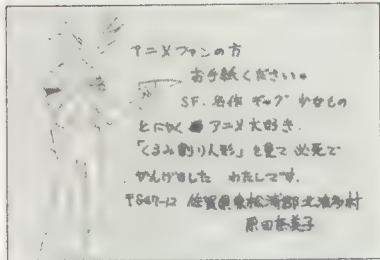 アニメファンの方
お手紙ください。
SF. 名作 ギャグ 少女もの
とにかく アニメ大好き.
「くるみ割り人形」を見て 必死で
わたしです.
〒847-12 佐賀県東松浦郡北波多村
原田